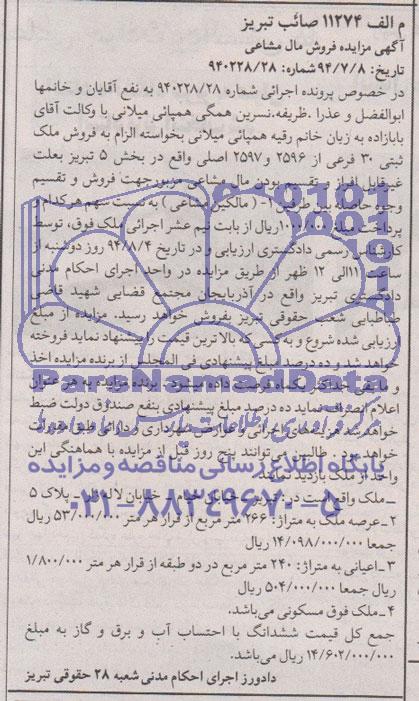 م الف ۱۱۲۷۴ صائب تبریز
آگهی مزایده فروش مال مشاعی
تاریخ: ۹۴/۷/۸ شماره: ۹۴۰۲۲۸/۲۸
در خصوص پرونده اجرائی شماره ۹۴۰۲۲۸/۲۸ به نفع آقایان و خانمها
ابوالفضل و عذرا .ظریفه.نسرین همگی همپائی میلانی با وکالت آقای
بابازاده به زیان خانم رقیه همپائی میلانی بخواسته الزام به فروش ملک
ثبتی ۳۰ فرعی از ۲۵۹۶ و ۲۵۹۷ اصلی واقع در بخش ۵ تبریز بعلت
غیرقابل افراز و تقسیم بودن مال مشاعی مزبور جهت فروش و تقسیم
وجوه حاصله بین طرفین ۱- (مالکین مشاعی) به نسبت سهم هرکدام و
پرداخت مبلغ ۱۰۰۰/۰۰۰ریال از بابت نیم عشر اجرائی ملک فوق، توسط
کارشناس رسمی دادگستری ارزیابی و در تاریخ ۹۴/۸/۴ روز دوشنبه از
ساعت ۱۱الی ۱۲ ظهر از طریق مزایده در واحد اجرای احکام مدنی
دادگستری تبریز واقع در آذربایجان مجتمع قضایی شهید قاضی
طباطبایی شعبه حقوقی تبریز بفروش خواهد رسید. مزایده از مبلغ
ارزیابی شده شروع و به کسی که بالاترین قیمت را پیشنهاد نماید فروخته
خواهد شد و ده درصد مبلغ پیشنهادی فی المجلس از برنده مزایده اخذ
و مابقی حداکثر یکماه فرصت داده میشود. برنده مزایده به هر عنوان
اعلام انصراف نماید ده درصد مبلغ پیشنهادی بنفع صندوق دولت ضبط
خواهد شد هزینه های اجرائی و عوارض شهرداری و دارائی طبق مقررات
خواهد بود. طالبین می‌توانند پنج روز قبل از مزایده با هماهنگی این
واحد از ملک بازدید نمایند.
ـ ملک واقع است در: تبریز خیابان خیام خیابان لاله پلاک ۵
۲ـ عرصه ملک به متراژ: ۲۶۶ متر مربع از قرار هر متر ۵۳/۰۰۰/۰۰۰ ریال
جمعا ۱۴/۰۹۸/۰۰۰/۰۰۰ ریال
۳ـ اعیانی به متراژ: ۲۴۰ متر مربع در دو طبقه از قرار هر متر ۱/۸۰۰/۰۰۰
ریال جمعا ۵۰۴/۰۰۰/۰۰۰ ریال
۴ـ ملک فوق مسکونی می‌باشد.
جمع کل قیمت ششدانگ با احتساب آب و برق و گاز به مبلغ
۱۴/۶۰۲/۰۰۰/۰۰۰ ریال می‌باشد.
دادورز اجرای احکام مدنی شعبه ۲۸ حقوقی تبریز
ParsNamadData
پایگاه اطلاع رسانی مناقصه و مزایده
۰۲۱-۸۸۳۴۹۶۷۰-۵